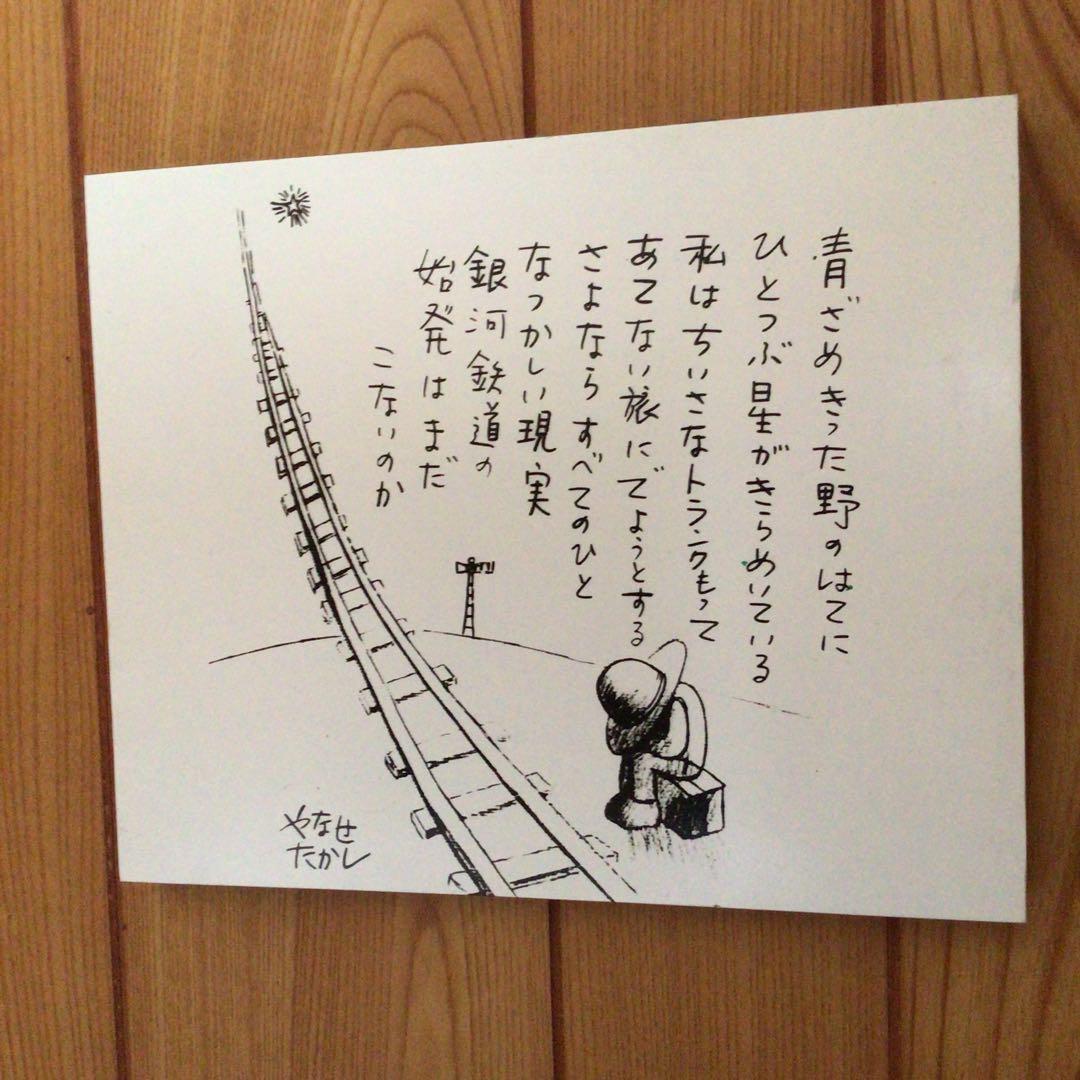 青ざめきった野のはてに
ひとつぶ星がきらめいている
私はちいさなトランクもって
あてない旅にでようとする
さよなら すべてのひと
なつかしい現実
銀河鉄道の
始発はまだ
こないのか
やなせ
たかし